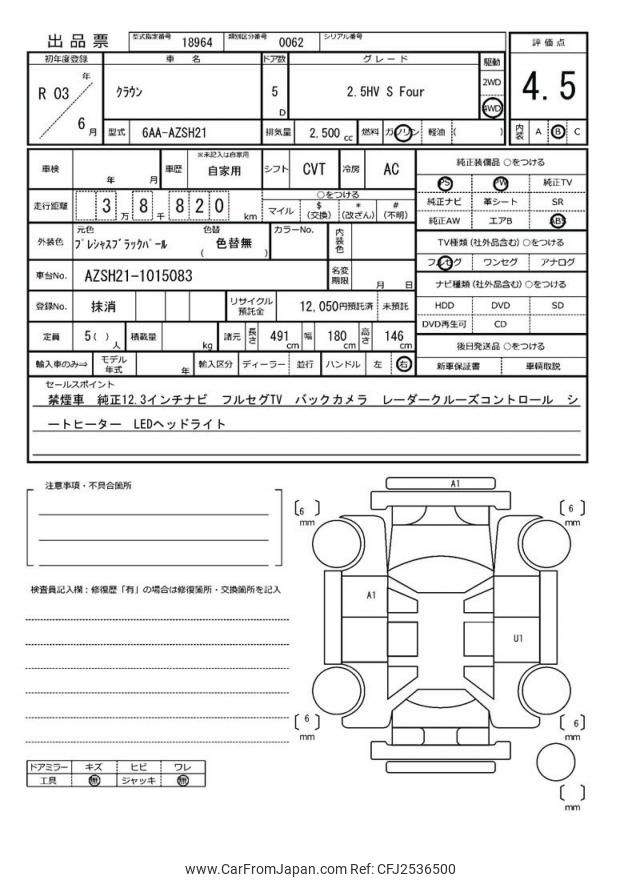 出品票 型式指定番号 18964 類別区分番号 0062 シリアル番号
初年度登録 車 名 ドア数 グレード 駆動 評価点
R 03 年 6 月 クラウン 5 D 2.5HV S Four 2WD 4WD 4.5
型式 6AA-AZSH21 排気量 2,500 cc 燃料 ガソリン 軽油 ( ) 内装 A B C
車検 年 月 車歴 ※未記入は自家用 自家用 シフト CVT 冷房 AC
走行距離 3 万 8 千 8 2 0 km
○をつける
マイル $ (交換) * (改ざん) # (不明)
外装色 元色 プレシャスブラックパール 色替 ( 色替無 ) カラーNo. 内装色
車台No. AZSH21-1015083 名変期限 月 日
登録No. 抹消 リサイクル預託金 12,050円預託済 未預託
定員 5( ) 人 積載量 kg 諸元 長さ 491 cm 幅 180 cm 高さ 146 cm
輸入車のみ⇒ モデル年式 年 輸入区分 ディーラー 並行 ハンドル 左 右
純正装備品 ○をつける
PS PW 純正TV
純正ナビ 革シート SR
純正AW エアB ABS
TV種類 (社外品含む) ○をつける
フルセグ ワンセグ アナログ
ナビ種類 (社外品含む) ○をつける
HDD DVD SD
DVD再生可 CD
後日発送品 ○をつける
新車保証書 車輌取説
セールスポイント
禁煙車 純正12.3インチナビ フルセグTV バックカメラ レーダークルーズコントロール シ
ートヒーター LEDヘッドライト
注意事項・不具合箇所
検査員記入欄：修復歴「有」の場合は修復箇所・交換箇所を記入
A1
[ 6 ] mm
[ 6 ] mm
A1
U1
[ 6 ] mm
[ 6 ] mm
[ ] mm
ドアミラー キズ ヒビ ワレ
工具 無 ジャッキ 無
www.CarFromJapan.com Ref: CFJ2536500